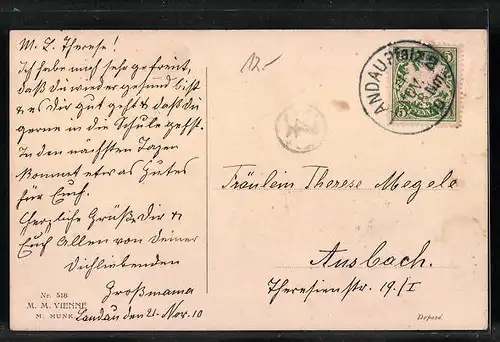 M. L. Therese!
Ich habe mich sehr gefreut,
daß du wieder gesund bist
& es dir gut geht & daß du
gerne in die Schule gehst.
In den nächsten Tagen
kommt etwas Gutes
für Euch.
Herzliche Grüße dir &
Euch Allen von Deiner
Dichliebenden
Großmama
Landau den 21. Nov. 10
12.-
LANDAU Pfalz
5
Fräulein Therese Megele
Ansbach.
Theresienstr. 19/I
Nr. 518
M. M. VIENNE
M. MUNK
Deposé.